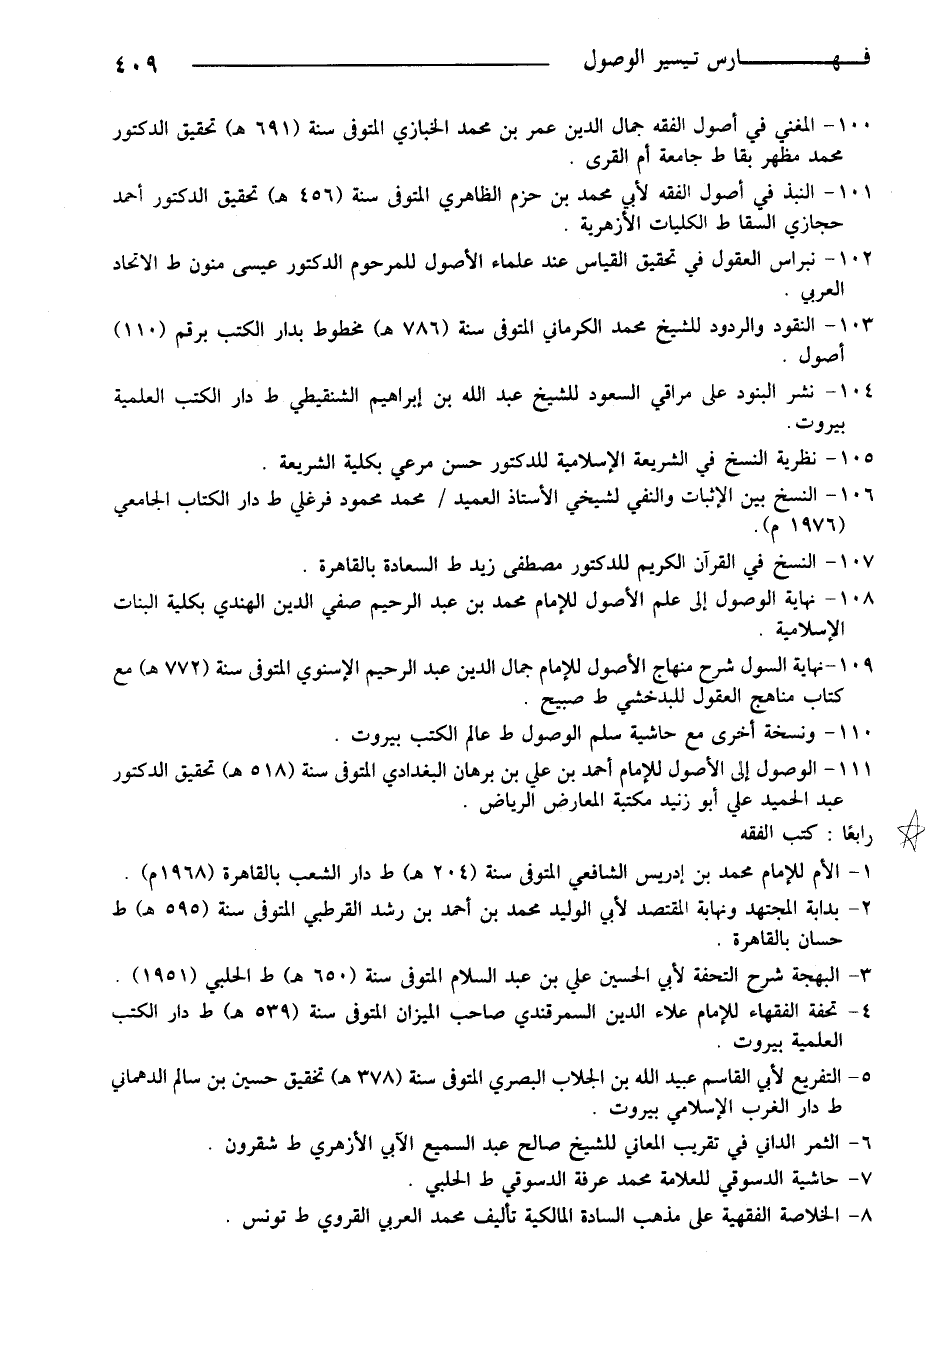 فهارس تيسير الوصول ٤٠٩
١٠٠- المغني في أصول الفقه جمال الدين عمر بن محمد الخبازي المتوفى سنة (٦٩١ هـ) تحقيق الدكتور
محمد مظهر بقا ط جامعة أم القرى .
١٠١- النبذ في أصول الفقه لأبي محمد بن حزم الظاهري المتوفى سنة (٤٥٦ هـ) تحقيق الدكتور أحمد
حجازي السقا ط الكليات الأزهرية .
١٠٢- نبراس العقول في تحقيق القياس عند علماء الأصول للمرحوم الدكتور عيسى منون ط الاتحاد
العربي .
١٠٣- النقود والردود للشيخ محمد الكرماني المتوفى سنة (٧٨٦ هـ) مخطوط بدار الكتب برقم (١١٠)
أصول .
١٠٤- نشر البنود على مراقي السعود للشيخ عبد الله بن إبراهيم الشنقيطي ط دار الكتب العلمية
بيروت.
١٠٥- نظرية النسخ في الشريعة الإسلامية للدكتور حسن مرعي بكلية الشريعة .
١٠٦- النسخ بين الإثبات والنفي لشيخي الأستاذ العميد / محمد محمود فرغلي ط دار الكتاب الجامعي
(١٩٧٦ م).
١٠٧- النسخ في القرآن الكريم للدكتور مصطفى زيد ط السعادة بالقاهرة .
١٠٨- نهاية الوصول إلى علم الأصول للإمام محمد بن عبد الرحيم صفي الدين الهندي بكلية البنات
الإسلامية .
١٠٩-نهاية السول شرح منهاج الأصول للإمام جمال الدين عبد الرحيم الإسنوي المتوفى سنة (٧٧٢ هـ) مع
كتاب مناهج العقول للبدخشي ط صبيح .
١١٠- ونسخة أخرى مع حاشية سلم الوصول ط عالم الكتب بيروت .
١١١- الوصول إلى الأصول للإمام أحمد بن علي بن برهان البغدادي المتوفى سنة (٥١٨ هـ) تحقيق الدكتور
عبد الحميد علي أبو زنيد مكتبة المعارض الرياض .
رابعًا : كتب الفقه
١- الأم للإمام محمد بن إدريس الشافعي المتوفى سنة (٢٠٤ هـ) ط دار الشعب بالقاهرة (١٩٦٨م) .
٢- بداية المجتهد ونهاية المقتصد لأبي الوليد محمد بن أحمد بن رشد القرطبي المتوفى سنة (٥٩٥ هـ) ط
حسان بالقاهرة .
٣- البهجة شرح التحفة لأبي الحسين علي بن عبد السلام المتوفى سنة (٦٥٠ هـ) ط الحلبي (١٩٥١) .
٤- تحفة الفقهاء للإمام علاء الدين السمرقندي صاحب الميزان المتوفى سنة (٥٣٩ هـ) ط دار الكتب
العلمية بيروت .
٥- التفريع لأبي القاسم عبيد الله بن الجلاب البصري المتوفى سنة (٣٧٨ هـ) تحقيق حسين بن سالم الدهماني
ط دار الغرب الإسلامي بيروت .
٦- الثمر الداني في تقريب المعاني للشيخ صالح عبد السميع الآبي الأزهري ط شقرون .
٧- حاشية الدسوقي للعلامة محمد عرفة الدسوقي ط الحلبي .
٨- الخلاصة الفقهية على مذهب السادة المالكية تأليف محمد العربي القروي ط تونس .